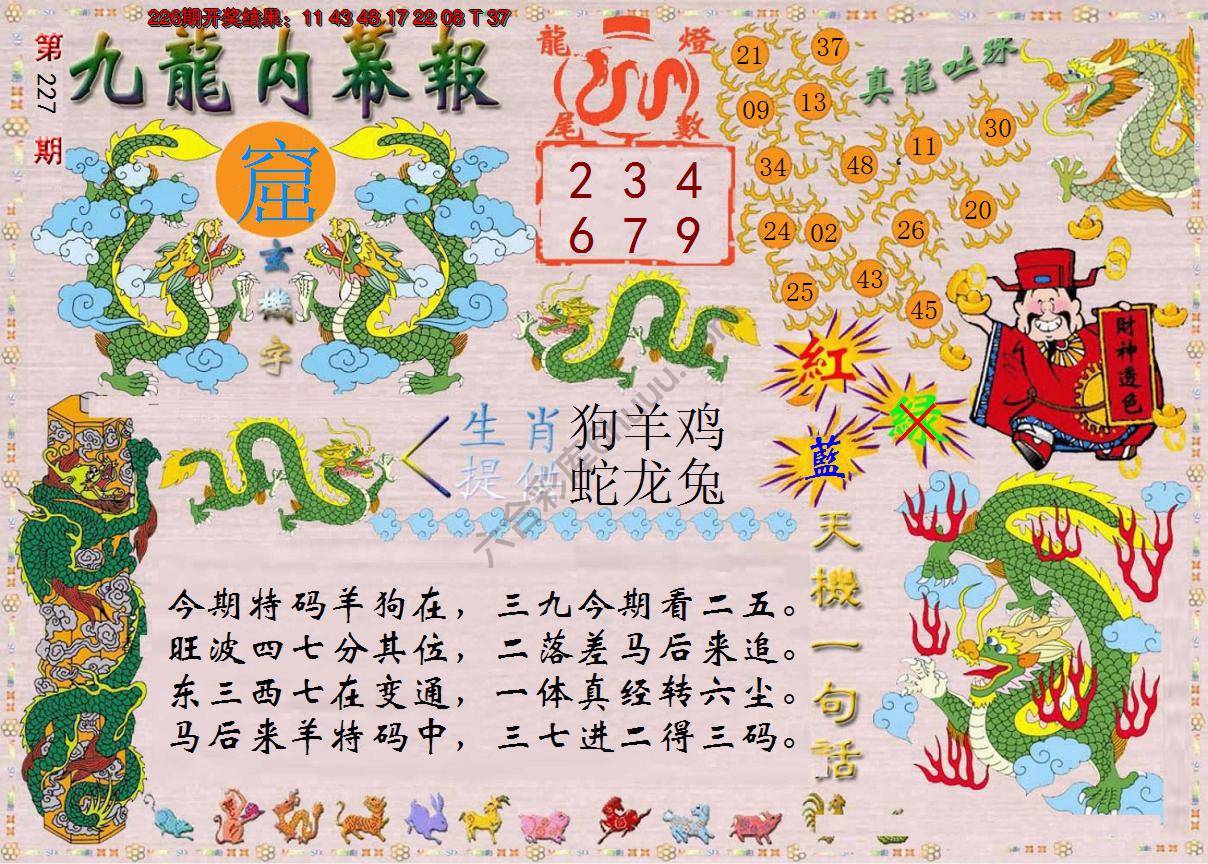 226期开奖结果：11 43 48 17 22 08 T 37
第227期
九龍内幕報
窟
玄機字
龍燈
尾數
2 3 4
6 7 9
真龍吐珠
21
37
09
13
11
30
34
48
20
24
02
26
25
43
45
紅
綠
藍
財神透色
生肖
提供
狗羊鸡
蛇龙兔
天機一句話
今期特码羊狗在，三九今期看二五。
旺波四七分其位，二落差马后来追。
东三西七在变通，一体真经转六尘。
马后来羊特码中，三七进二得三码。